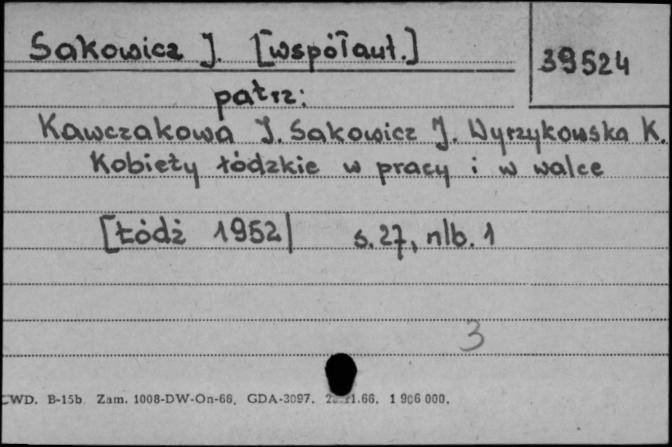 Sakowicz J. [współaut.]
39524
patrz:
Kawczakowa J. Sakowicz J. Wyrzykowska K.
Kobiety łódzkie w pracy i w walce
[Łódź 1952] s. 27, nlb. 1
3
CWD. B-15b. Zam. 1008-DW-On-66. GDA-3097. 11.66. 1 906 000.